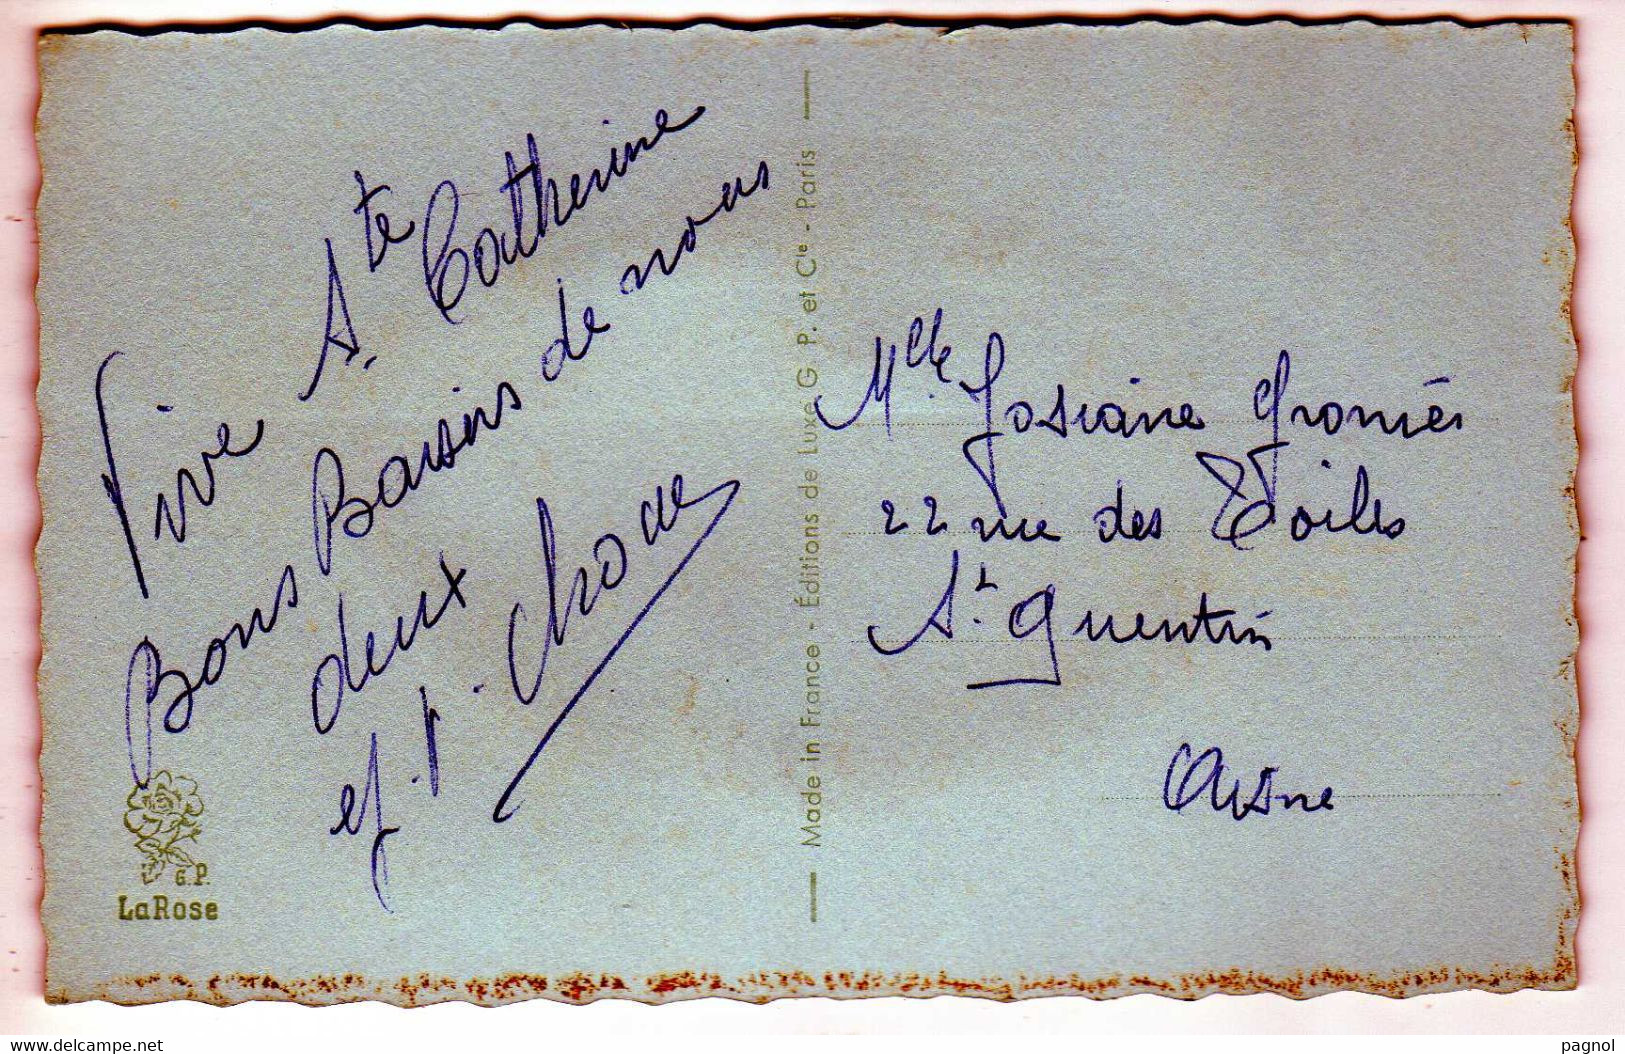 Vive Ste Catherine
Bons Baisers de nous
deux
G.P.
LaRose
Made in France - Éditions de Luxe G. P. et Cie - Paris
Mlle Josiane
22 rue des Toiles
St. Quentin
Aisne
www.delcampe.net
pagnol